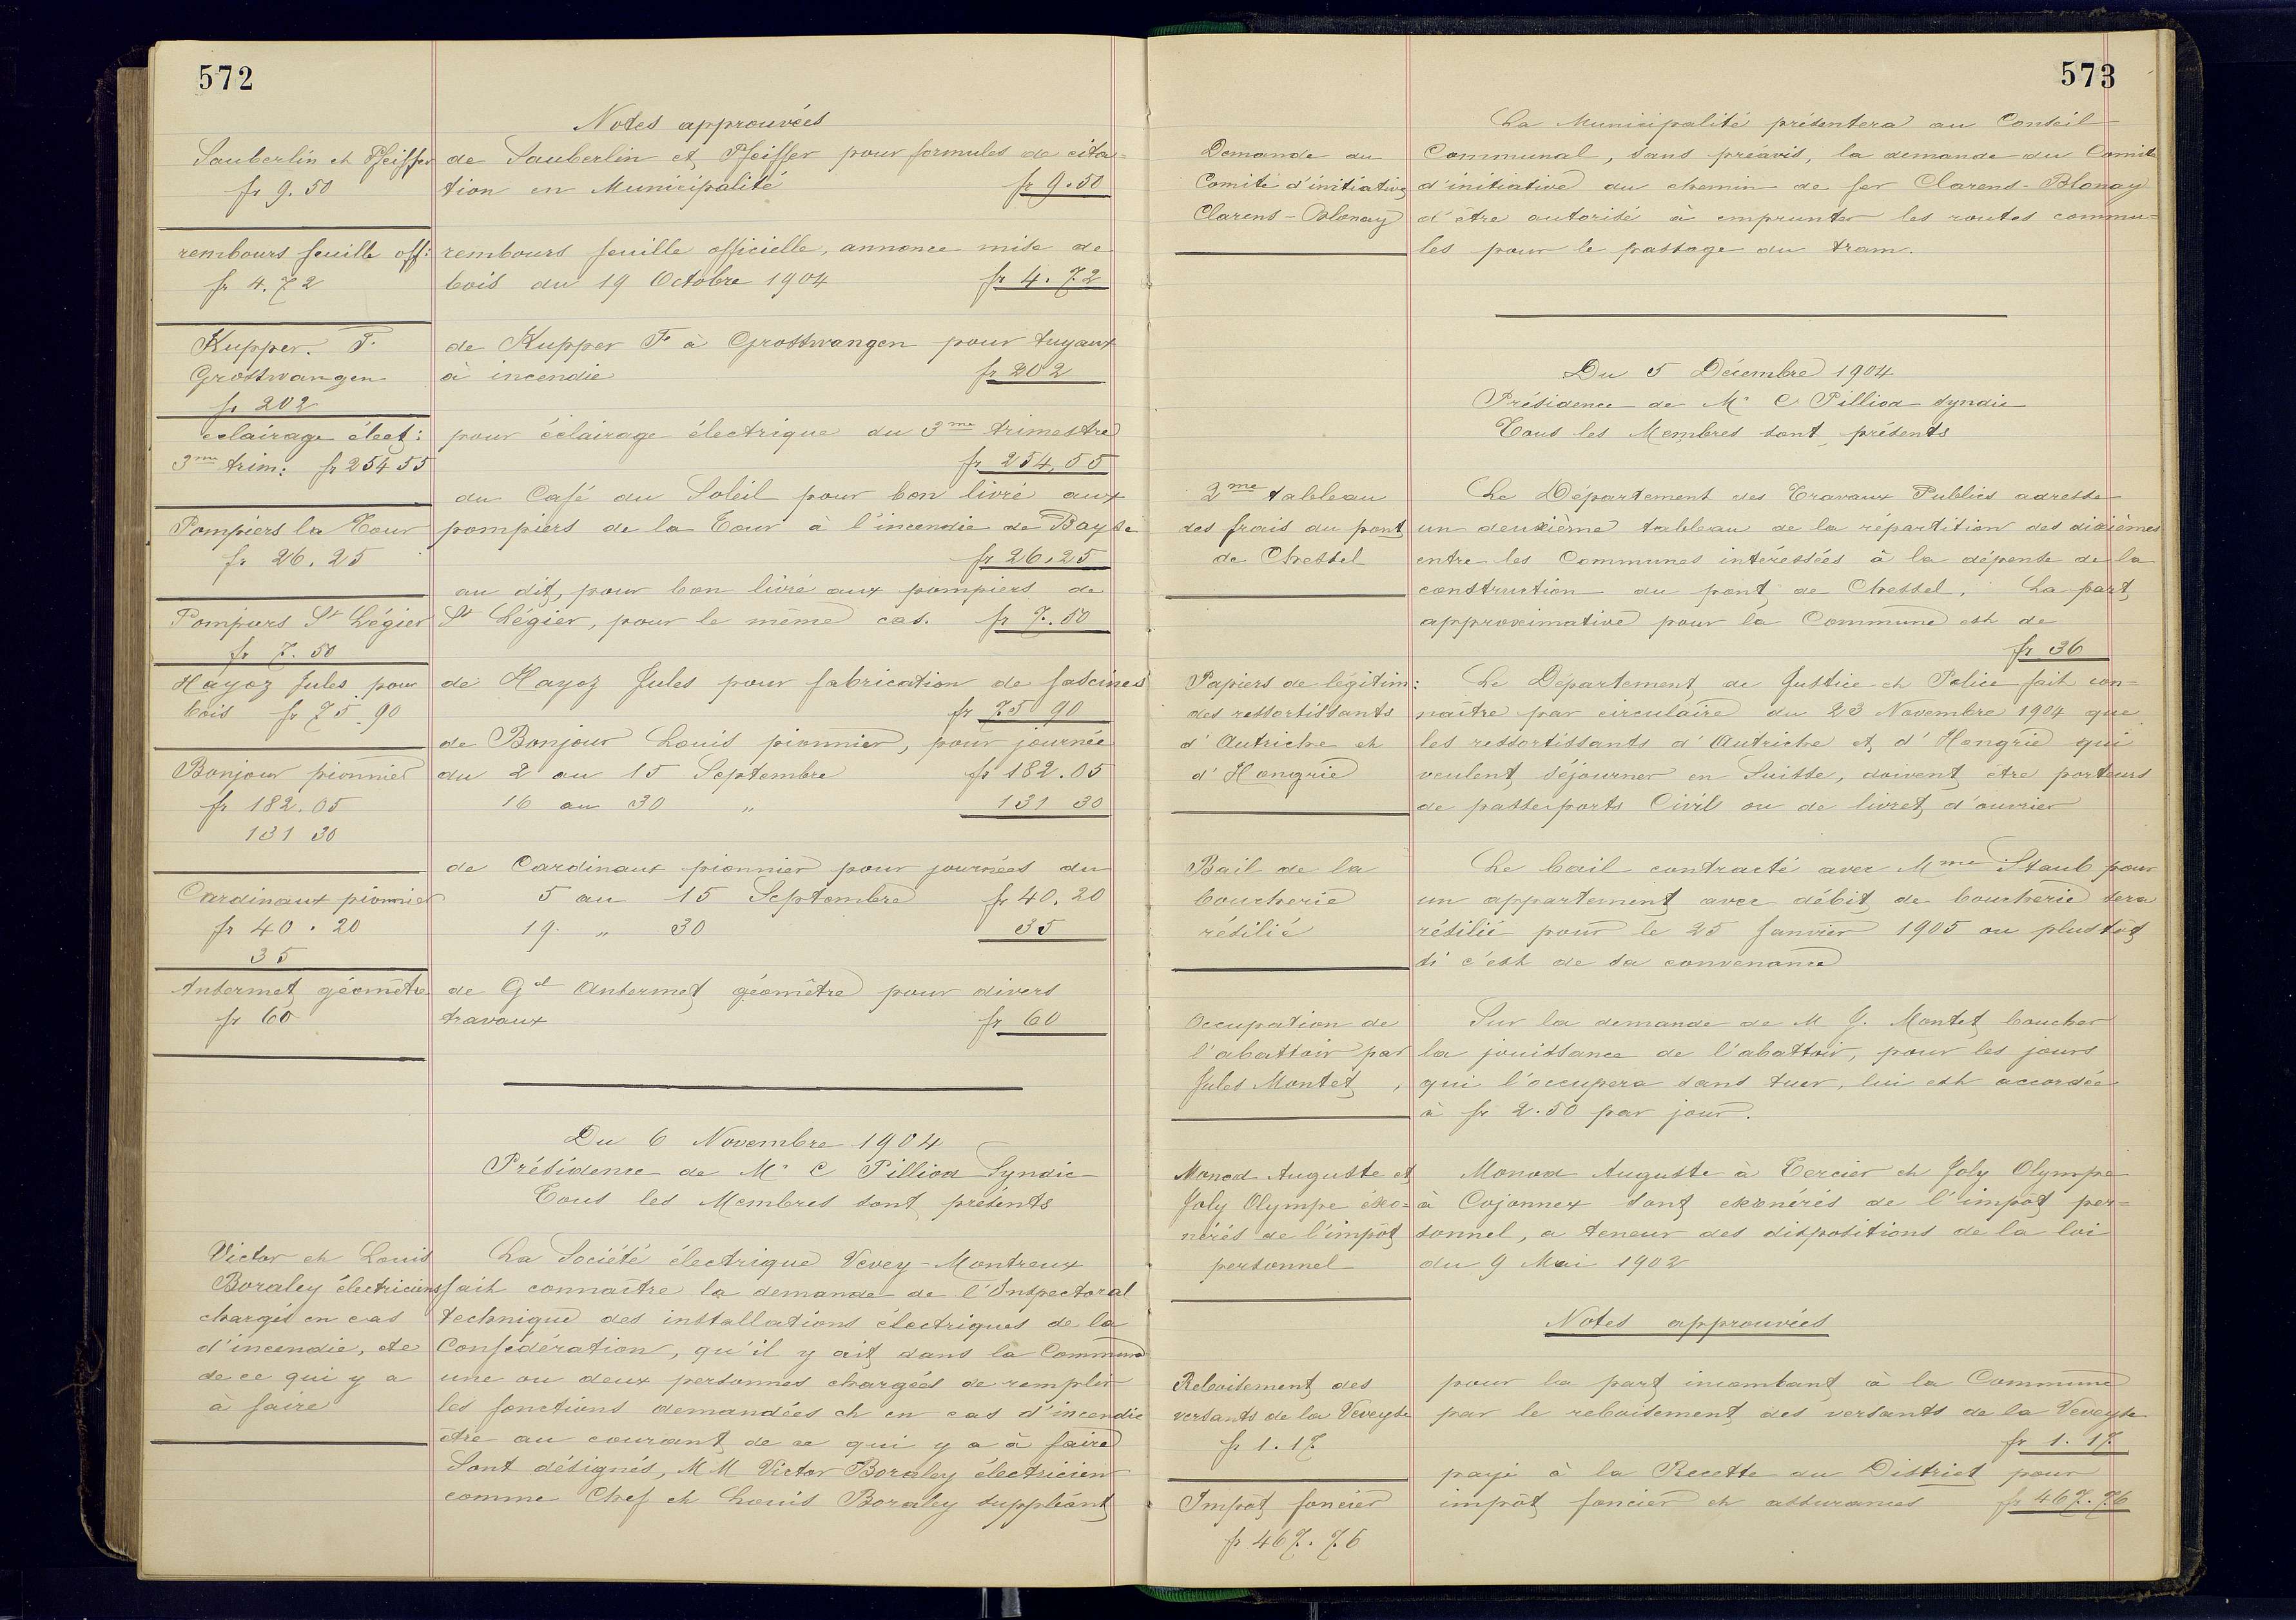 572
Notes approuvées
Sauberlin et Pfeiffer
fr 9.50
de Sauberlin et Pfeiffer pour formules de cita=
tion en Municipalité fr 9.50
rembours feuille off:
fr 4.72
rembours feuille officielle, annonce mise de
bois du 19 Octobre 1904 fr 4.72
Kupper. F.
Grosswangen
fr 202
de Kupper F. à Grosswangen pour tuyaux
à incendie fr 202
eclairage élect:
3me trim: fr 254 55
pour éclairage électrique du 3me trimestre
fr 254,55
Pompiers la Tour
fr 26.25
du Café du Soleil pour bon livré aux
pompiers de la Tour à l'incendie de Bayse
fr 26.25
Pompiers St Légier
fr 7.50
au dit, pour bon livré aux pompiers de
St Légier, pour le même cas. fr 7.50
Hayoz Jules pour
bois fr 75.90
de Hayoz Jules pour fabrication de fascines
fr 75 90
Bonjour pionnier
fr 182.05
131 30
de Bonjour Louis pionnier, pour journée
du 2 au 15 Septembre fr 182.05
16 au 30 " 131 30
Cardinaux pionnier
fr 40.20
35
de Cardinaux pionnier pour journées du
5 au 15 Septembre fr 40.20
19 " 30 35
Ansermet géomètre
fr 60
de Gd Ansermet géomètre pour divers
travaux fr 60
Du 6 Novembre 1904
Présidence de Mr C Pilliod Syndic
Tous les Membres sont présents
Victor et Louis
Boraley électriciens
chargés en cas
d'incendie, etc
de ce qui y a
à faire
La Société électrique Vevey-Montreux
fait connaître la demande de l'Inspectorat
technique des installations électriques de la
Confédération, qu'il y ait dans la Commune
une ou deux personnes chargées de remplir
les fonctions demandées et en cas d'incendie
être au courant de ce qui y a à faire
Sont désignés, MM Victor Boraley électricien
comme Chef et Louis Boraley suppléant
573
Demande du
Comité d'initiative
Clarens-Blonay
La Municipalité présentera au Conseil
Communal, sans préavis, la demande du Comité
d'initiative du chemin de fer Clarens-Blonay
d'être autorisé à emprunter les routes commu=
les pour le passage du tram.
Du 5 Décembre 1904
Présidence de Mr C Pilliod syndic
Tous les Membres sont présents
2me tableau
des frais du pont
de Chessel
Le Département des Travaux Publics adresse
un deuxième tableau de la répartition des dixièmes
entre les Communes intéressées à la dépense de la
construction du pont de Chessel. La part
approximative pour la Commune est de
fr 36
Papiers de légitim:
des ressortissants
d'Autriche et
d'Hongrie
Le Département de Justice et Police fait con=
naître par circulaire du 23 Novembre 1904 que
les ressortissants d'Autriche et d'Hongrie qui
veulent séjourner en Suisse, doivent être porteurs
de passeports Civil ou de livret d'ouvrier
Bail de la
boucherie
résilié
Le bail contracté avec Mme Staub pour
un appartement avec débit de boucherie sera
résilié pour le 25 Janvier 1905 ou plus tôt
si c'est de sa convenance
Occupation de
l'abattoir par
Jules Montet,
Sur la demande de M J. Montet boucher
la jouissance de l'abattoir, pour les jours
qui l'occupera sans tuer, lui est accordée
à fr 2.50 par jour.
Monod Auguste et
Joly Olympe éxo=
nérés de l'impôt
personnel
Monod Auguste à Tercier et Joly Olympe
à Cojonnex sont exonérés de l'impôt per=
sonnel, a teneur des dispositions de la loi
du 9 Mai 1902
Notes approuvées
Reboisement des
versants de la Veveyse
fr 1.17
pour la part incombant à la Commune
par le reboisement des versants de la Veveyse
fr 1.17
Impôt foncier
fr 467.76
payé à la Recette du District pour
impôt foncier et assurances fr 467.76